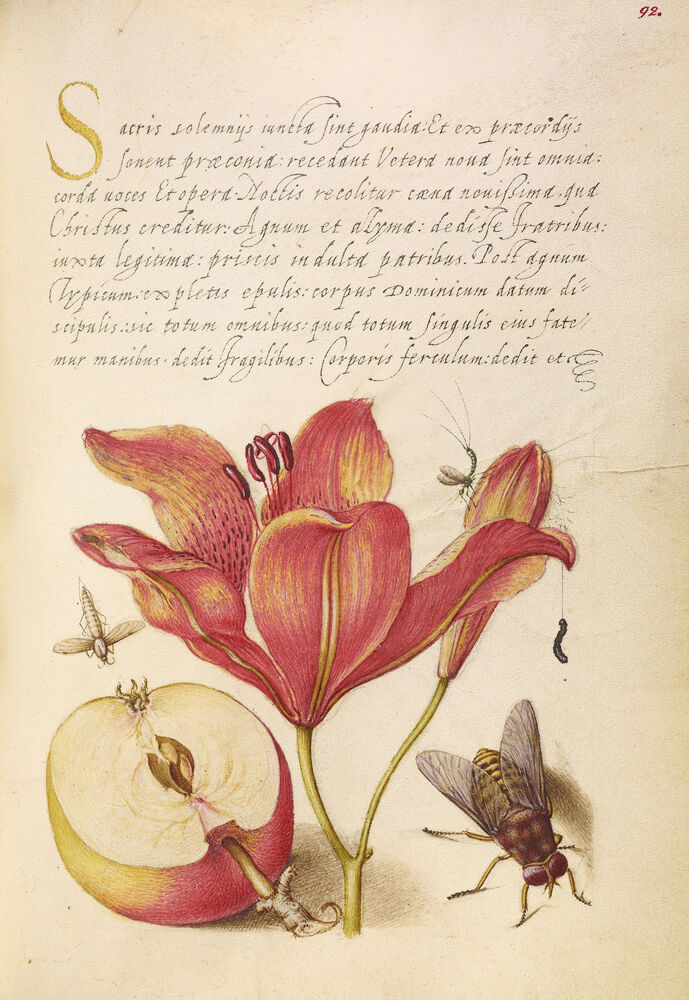 92.
Sacris solemnijs iuncta sint gaudia: Et ex præcordijs
sonent præconia: recedant Vetera noua sint omnia:
corda uoces Et opera. Noctis recolitur cæna nouissima. qua
Christus creditur: Agnum et azyma: dedisse fratribus:
iuxta legitima: priscis indulta patribus. Post agnum
Typicum: expletis epulis: corpus Dominicum datum di-
scipulis: sic totum omnibus: quod totum singulis eius fate-
mur manibus. dedit fragilibus: Corporis ferculum: dedit et